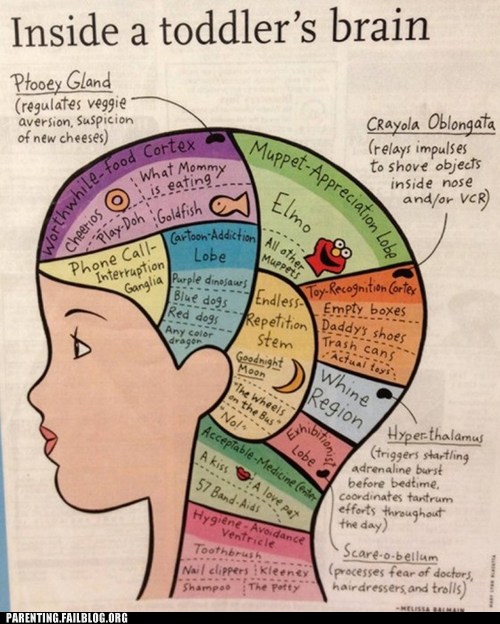 Inside a toddler's brain
Ptooey Gland
(regulates veggie
aversion, suspicion
of new cheeses)
Crayola Oblongata
(relays impulses
to shove objects
inside nose
and/or VCR)
Worthwhile-Food Cortex
What Mommy
is eating
Cheerios
Play-Doh
Goldfish
Muppet-Appreciation Lobe
Elmo
All other
Muppets
Phone Call-
Interruption
Ganglia
Cartoon-Addiction
Lobe
Purple dinosaurs
Blue dogs
Red dogs
Any color
dragon
Endless-
Repetition
Stem
Goodnight
Moon
"The Wheels
on the Bus"
"No!"
Toy-Recognition Cortex
Empty boxes
Daddy's shoes
Trash cans
"Actual toys"
Whine
Region
Exhibitionist
Lobe
Hyper-thalamus
(triggers startling
adrenaline burst
before bedtime,
coordinates tantrum
efforts throughout
the day)
Acceptable-Medicine Center
A kiss
A love pat
57 Band-Aids
Hygiene-Avoidance
Ventricle
Toothbrush
Nail clippers
Kleenex
Shampoo
The potty
Scare-o-bellum
(processes fear of doctors,
hairdressers, and trolls)
—MELISSA BALMAIN
PARENTING.FAILBLOG.ORG